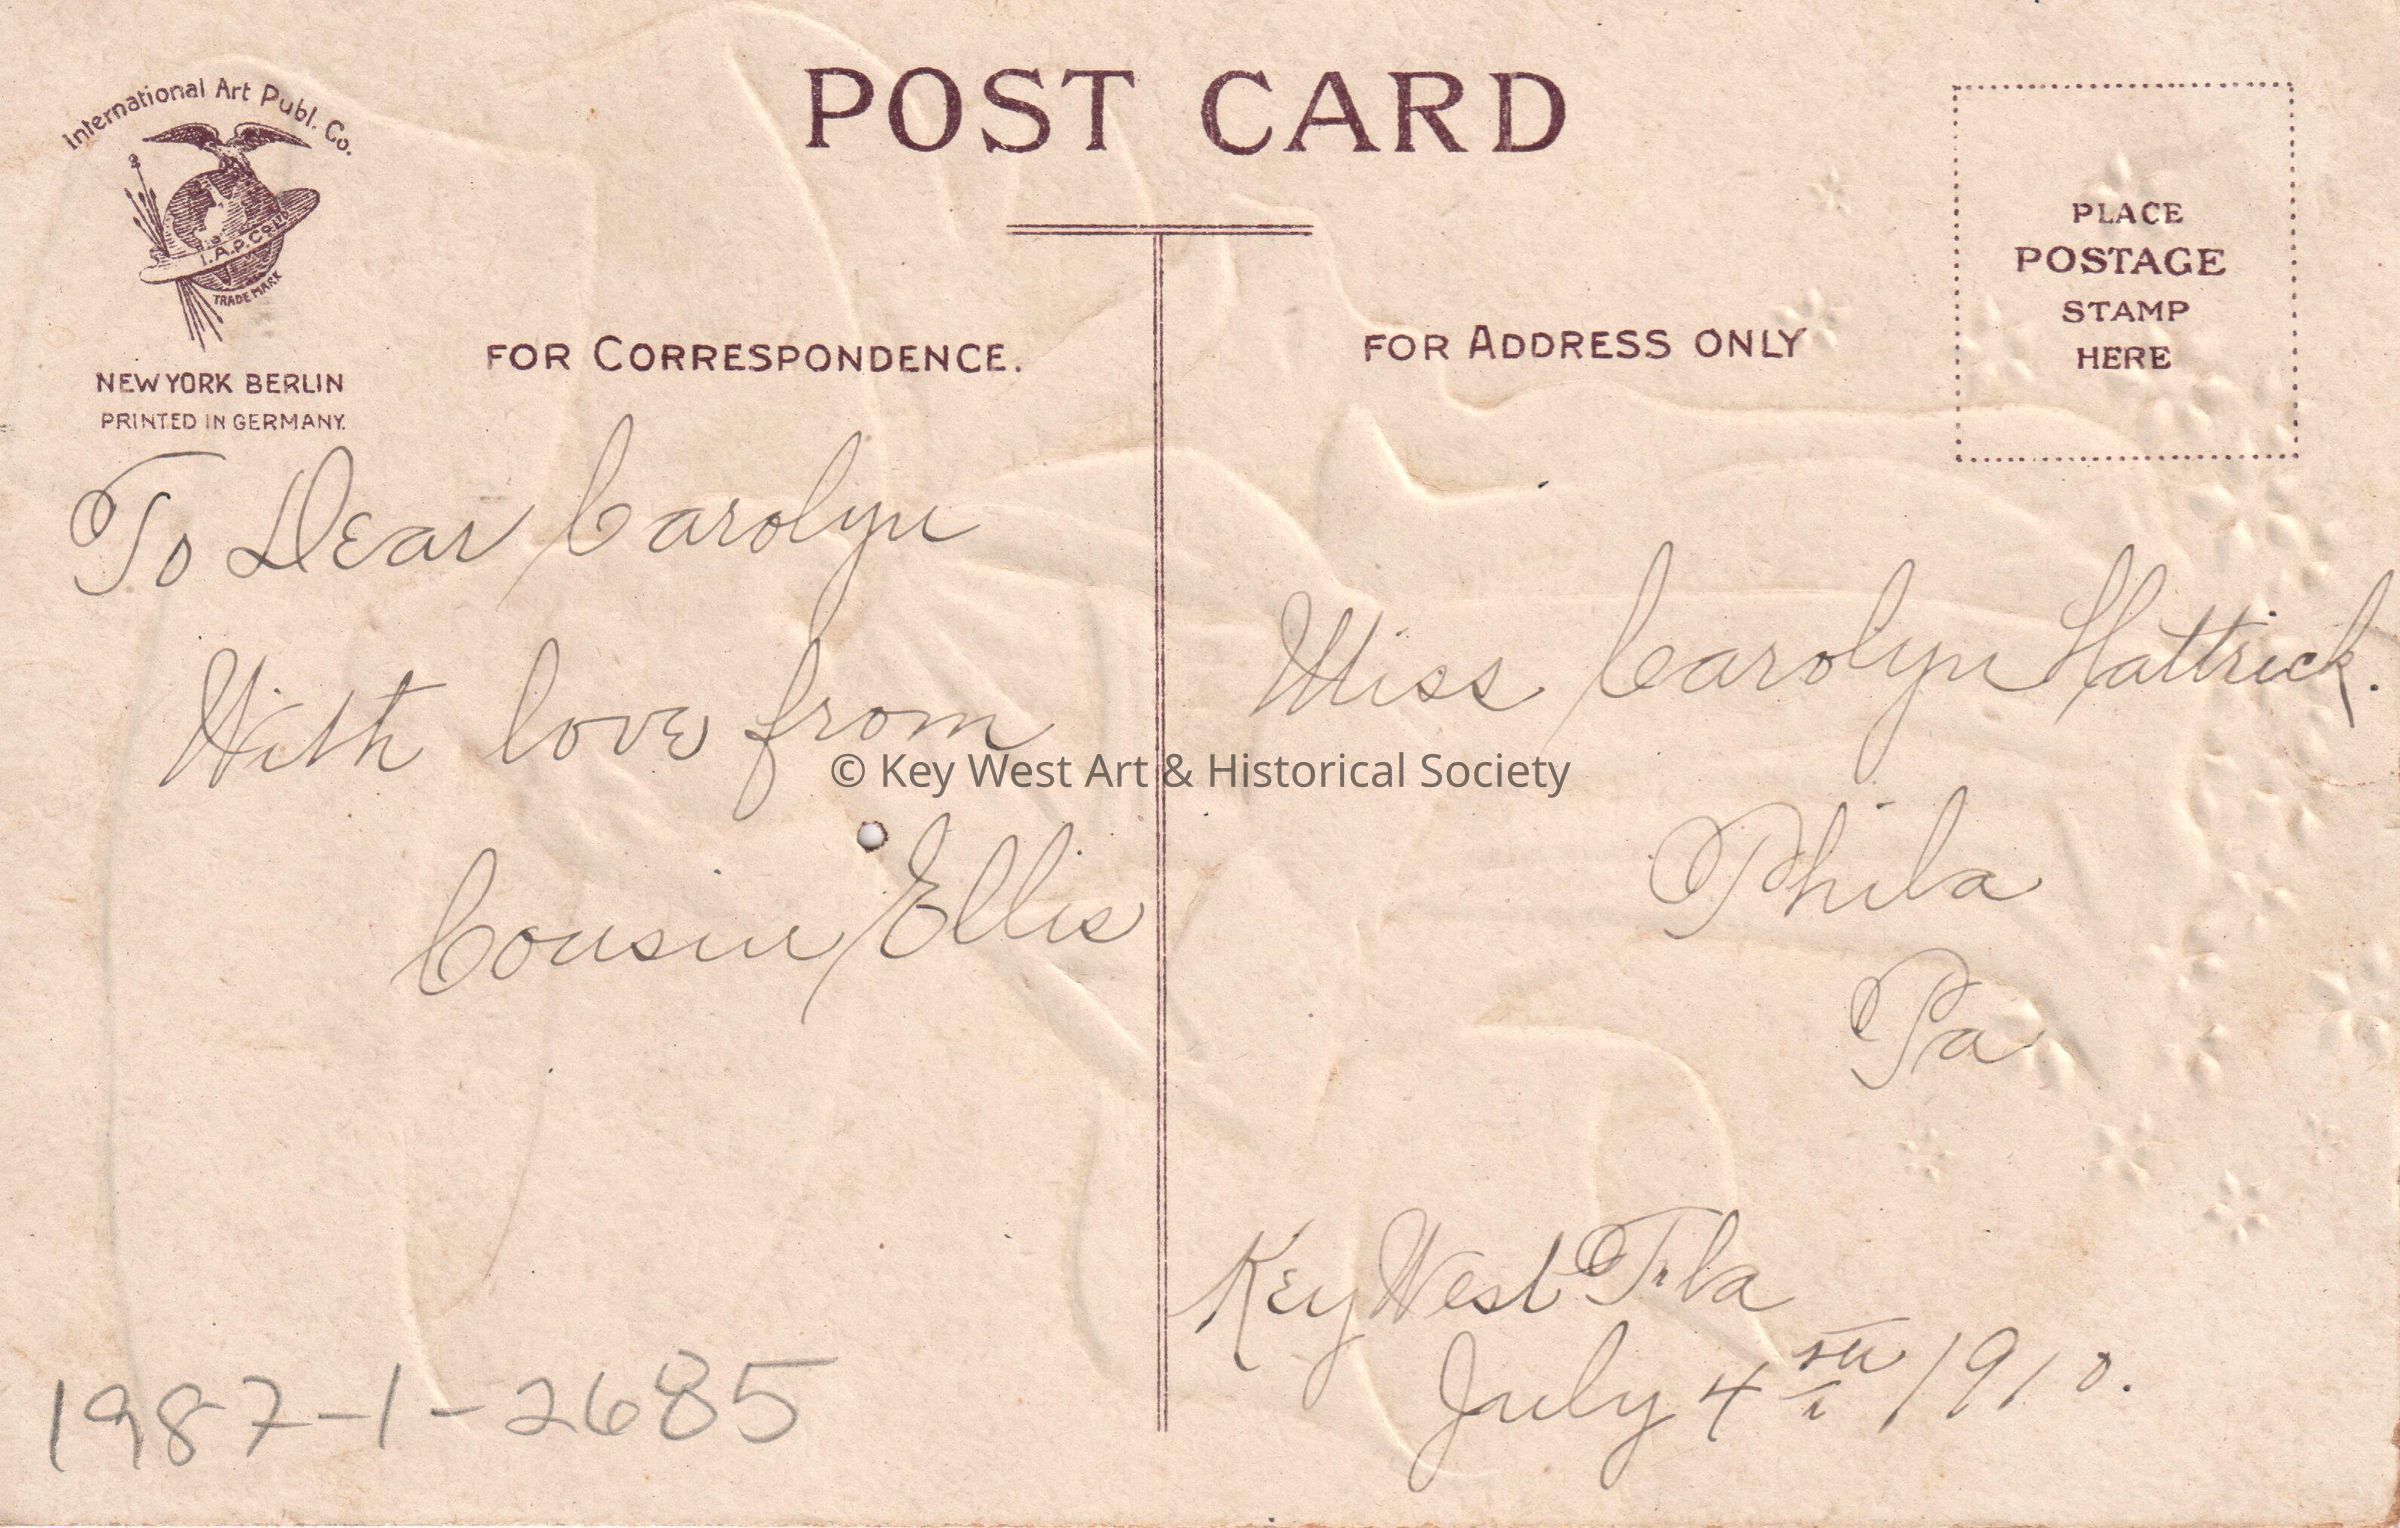 POST CARD
International Art Publ. Co.
I.A.P.Co.
TRADE MARK
NEW YORK BERLIN
PRINTED IN GERMANY.
FOR CORRESPONDENCE.
To Dear Carolyn
With love from
Cousin Ellis
1987-1-2685
FOR ADDRESS ONLY
PLACE
POSTAGE
STAMP
HERE
Miss Carolyn Hattrick.
Phila
Pa
Key West Fla
July 4th 1910.
© Key West Art & Historical Society